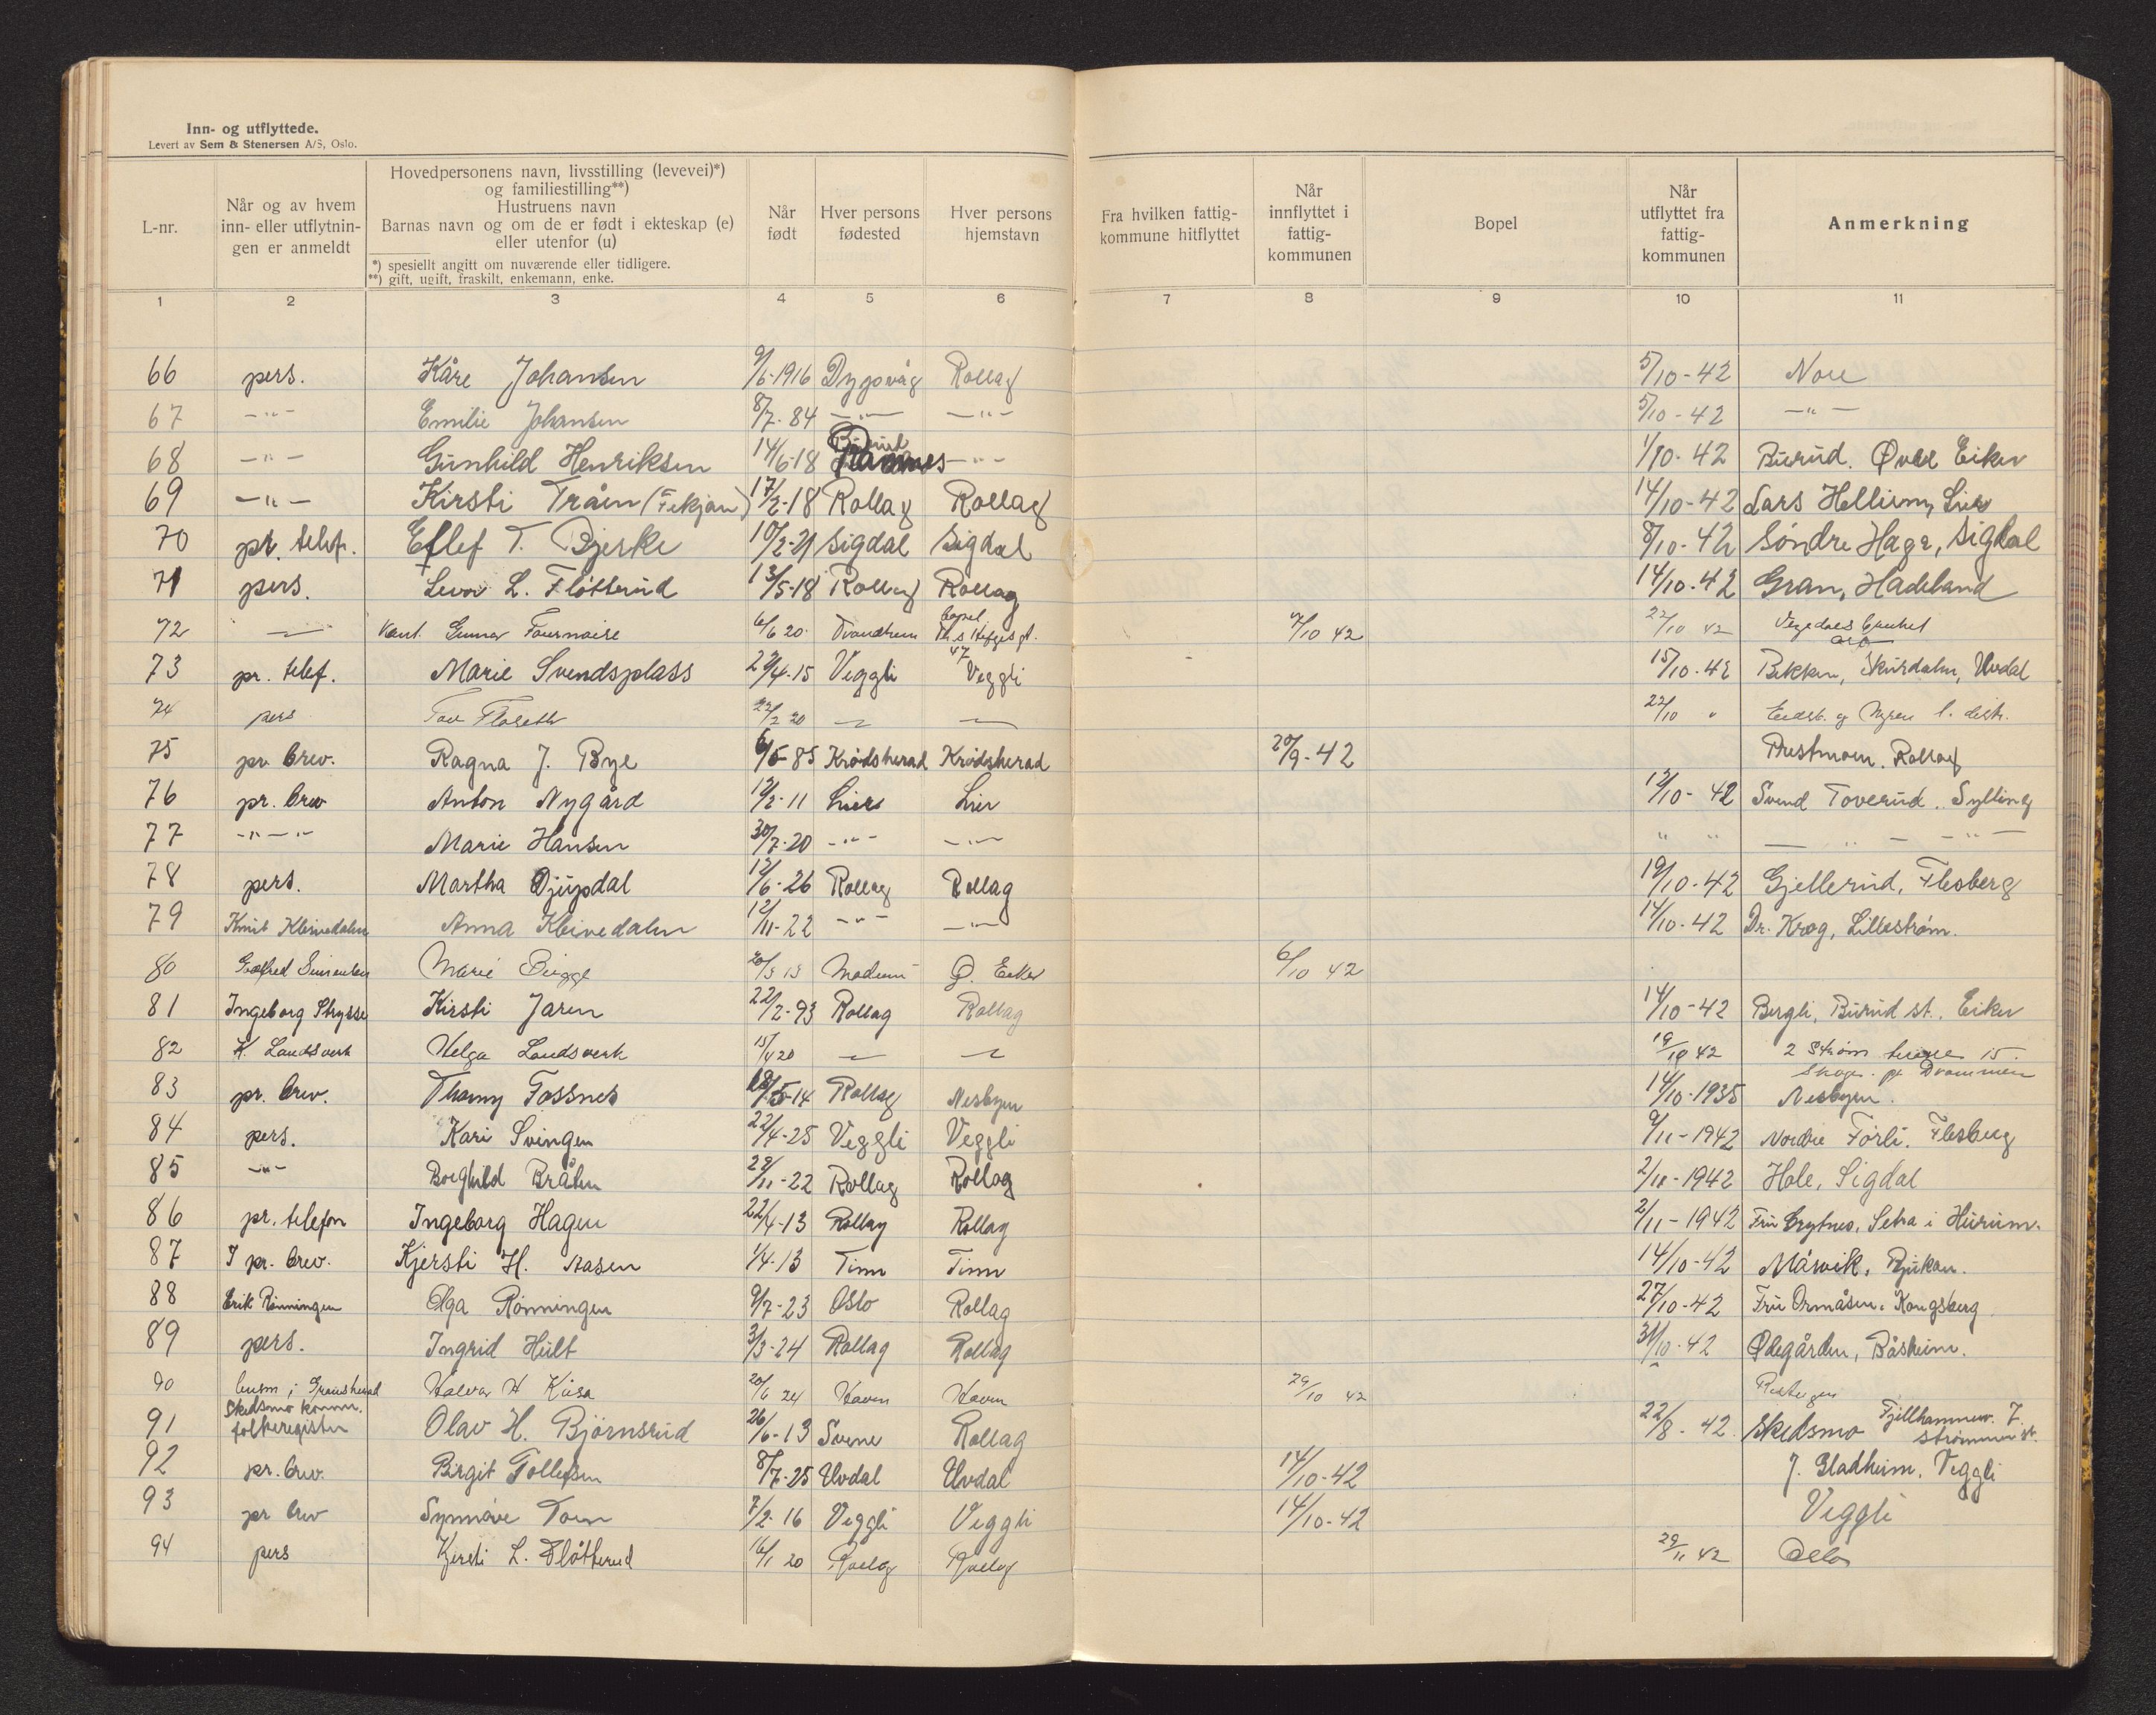 Inn- og utflyttede.
Levert av Sem & Stenersen A/S, Oslo.
L-nr.
Når og av hvem inn- eller utflytnin- gen er anmeldt
Hovedpersonens navn, livsstilling (levevei)*)
og familiestilling**)
Hustruens navn
Barnas navn og om de er født i ekteskap (e)
eller utenfor (u)
*) spesiellt angitt om nuværende eller tidligere.
**) gift, ugift, fraskilt, enkemann, enke.
Når født
Hver persons fødested
Hver persons hjemstavn
Fra hvilken fattig- kommune hitflyttet
Når innflyttet i fattig- kommunen
Bopel
Når utflyttet fra fattig- kommunen
Anmerkning
1 2 3 4 5 6 7 8 9 10 11
66 pers. Kåre Johansen 9/6-1916 Dypvåg Rollag 5/10-42 Nore
67 -"- Emilie Johansen 8/7-84 -"- -"- 5/10-42 -"-
68 -"- Gunhild Henriksen 14/6-18 -"- 1/10-42 Burud. Øvre Eiker
69 -"- Kirsti Tråen (Fekjan) 17/2-18 Rollag Rollag 14/10-42 Lars Hellum, Lier
70 pr. telef. Eflef T. Bjerke 10/2-21 Sigdal Sigdal 8/10-42 Søndre Haga, Sigdal
71 pers. Levor L. Fløtterud 13/5-18 Rollag Rollag 14/10-42 Gran, Hadeland
72 Gunnar Fournaise 6/6 20 Trondheim bopel 47 7/10 42 22/10 42
73 pr. telef. Marie Svendsplass 29/4-15 Veggli Veggli 15/10-42 Bekken, Skurdalen, Uvdal
74 pers Tov Floseth 22/2 20 22/10 "
75 pr. brev. Ragna J. Bye 6/5-85 Krødsherad Krødsherad 20/9-42 Prestmoen. Rollag
76 pr. brev Anton Nygård 12/2-11 Lier Lier 12/10-42 Svend Toverud. Sylling
77 -"-"- Marie Hansen 30/7-20 -"- -"- " " - " - " -
78 pers. Martha Djupdal 12/6-26 Rollag Rollag 19/10-42 Gjellerud, Flesberg
79 Knut Kleivedalen Anna Kleivedalen 12/11-22 -"- -"- 14/10-42 Dr. Krog, Lillestrøm.
80 Marie Bigge Modum Ø. Eiker 6/10 42
81 Ingeborg Strysse Kirsti Jaren 22/2-93 Rollag Rollag 14/10-42 Bergli, Burud st., Eiker
82 K. Landsverk Helga Landsverk 15/4 20 19/10 42 2 Strøm terrasse 15.
Skoger. pr Drammen
83 pr. brev. Thomy Fossnes 5-14 Rollag Nesbyen 14/10-1935 Nesbyen.
84 pers. Kari Svingen 22/4-25 Veggli Veggli 9/11-1942 Nordre Førli. Flesberg
85 -"- Borghild Bråten 29/11-22 Rollag Rollag 2/11-1942 Hole, Sigdal
86 pr. telefon Ingeborg Hagen 22/4-13 Rollag Rollag 2/11-1942 Fru Grytnes, Setra i Hurum.
87 I pr. brev. Kjersti H. Aasen 1/4-13 Tinn Tinn 14/10-42 Mårvik, Rjukan.
88 Erik Rønningen Olga Rønningen 9/7-23 Oslo Rollag 27/10-42 Fru Ormåsen, Kongsberg
89 pers. Ingrid Hult 3/3-24 Rollag Rollag 31/10-42 Ødegården, Båsheim.
90 Gransherad Halvor H Kåsa 20/6 24 Hovin Hovin 29/10 42
91 Skedsmo komm. folkeregister Olav H. Bjørnsrud 26/6-13 Svene Rollag 22/8-42 Skedsmo Fjellhammerv. 7. Strømmen st.
92 pr. brev. Birgit Tollefsen 8/7-25 Uvdal Uvdal 14/10-42 J. Gladheim, Veggli
93 pr brev Synnøve Toen 7/2-16 Veggli Veggli 14/10-42 Veggli
94 pers Kjersti L. Fløtterud 16/1 20 Rollag Rollag 29/11 42 Oslo